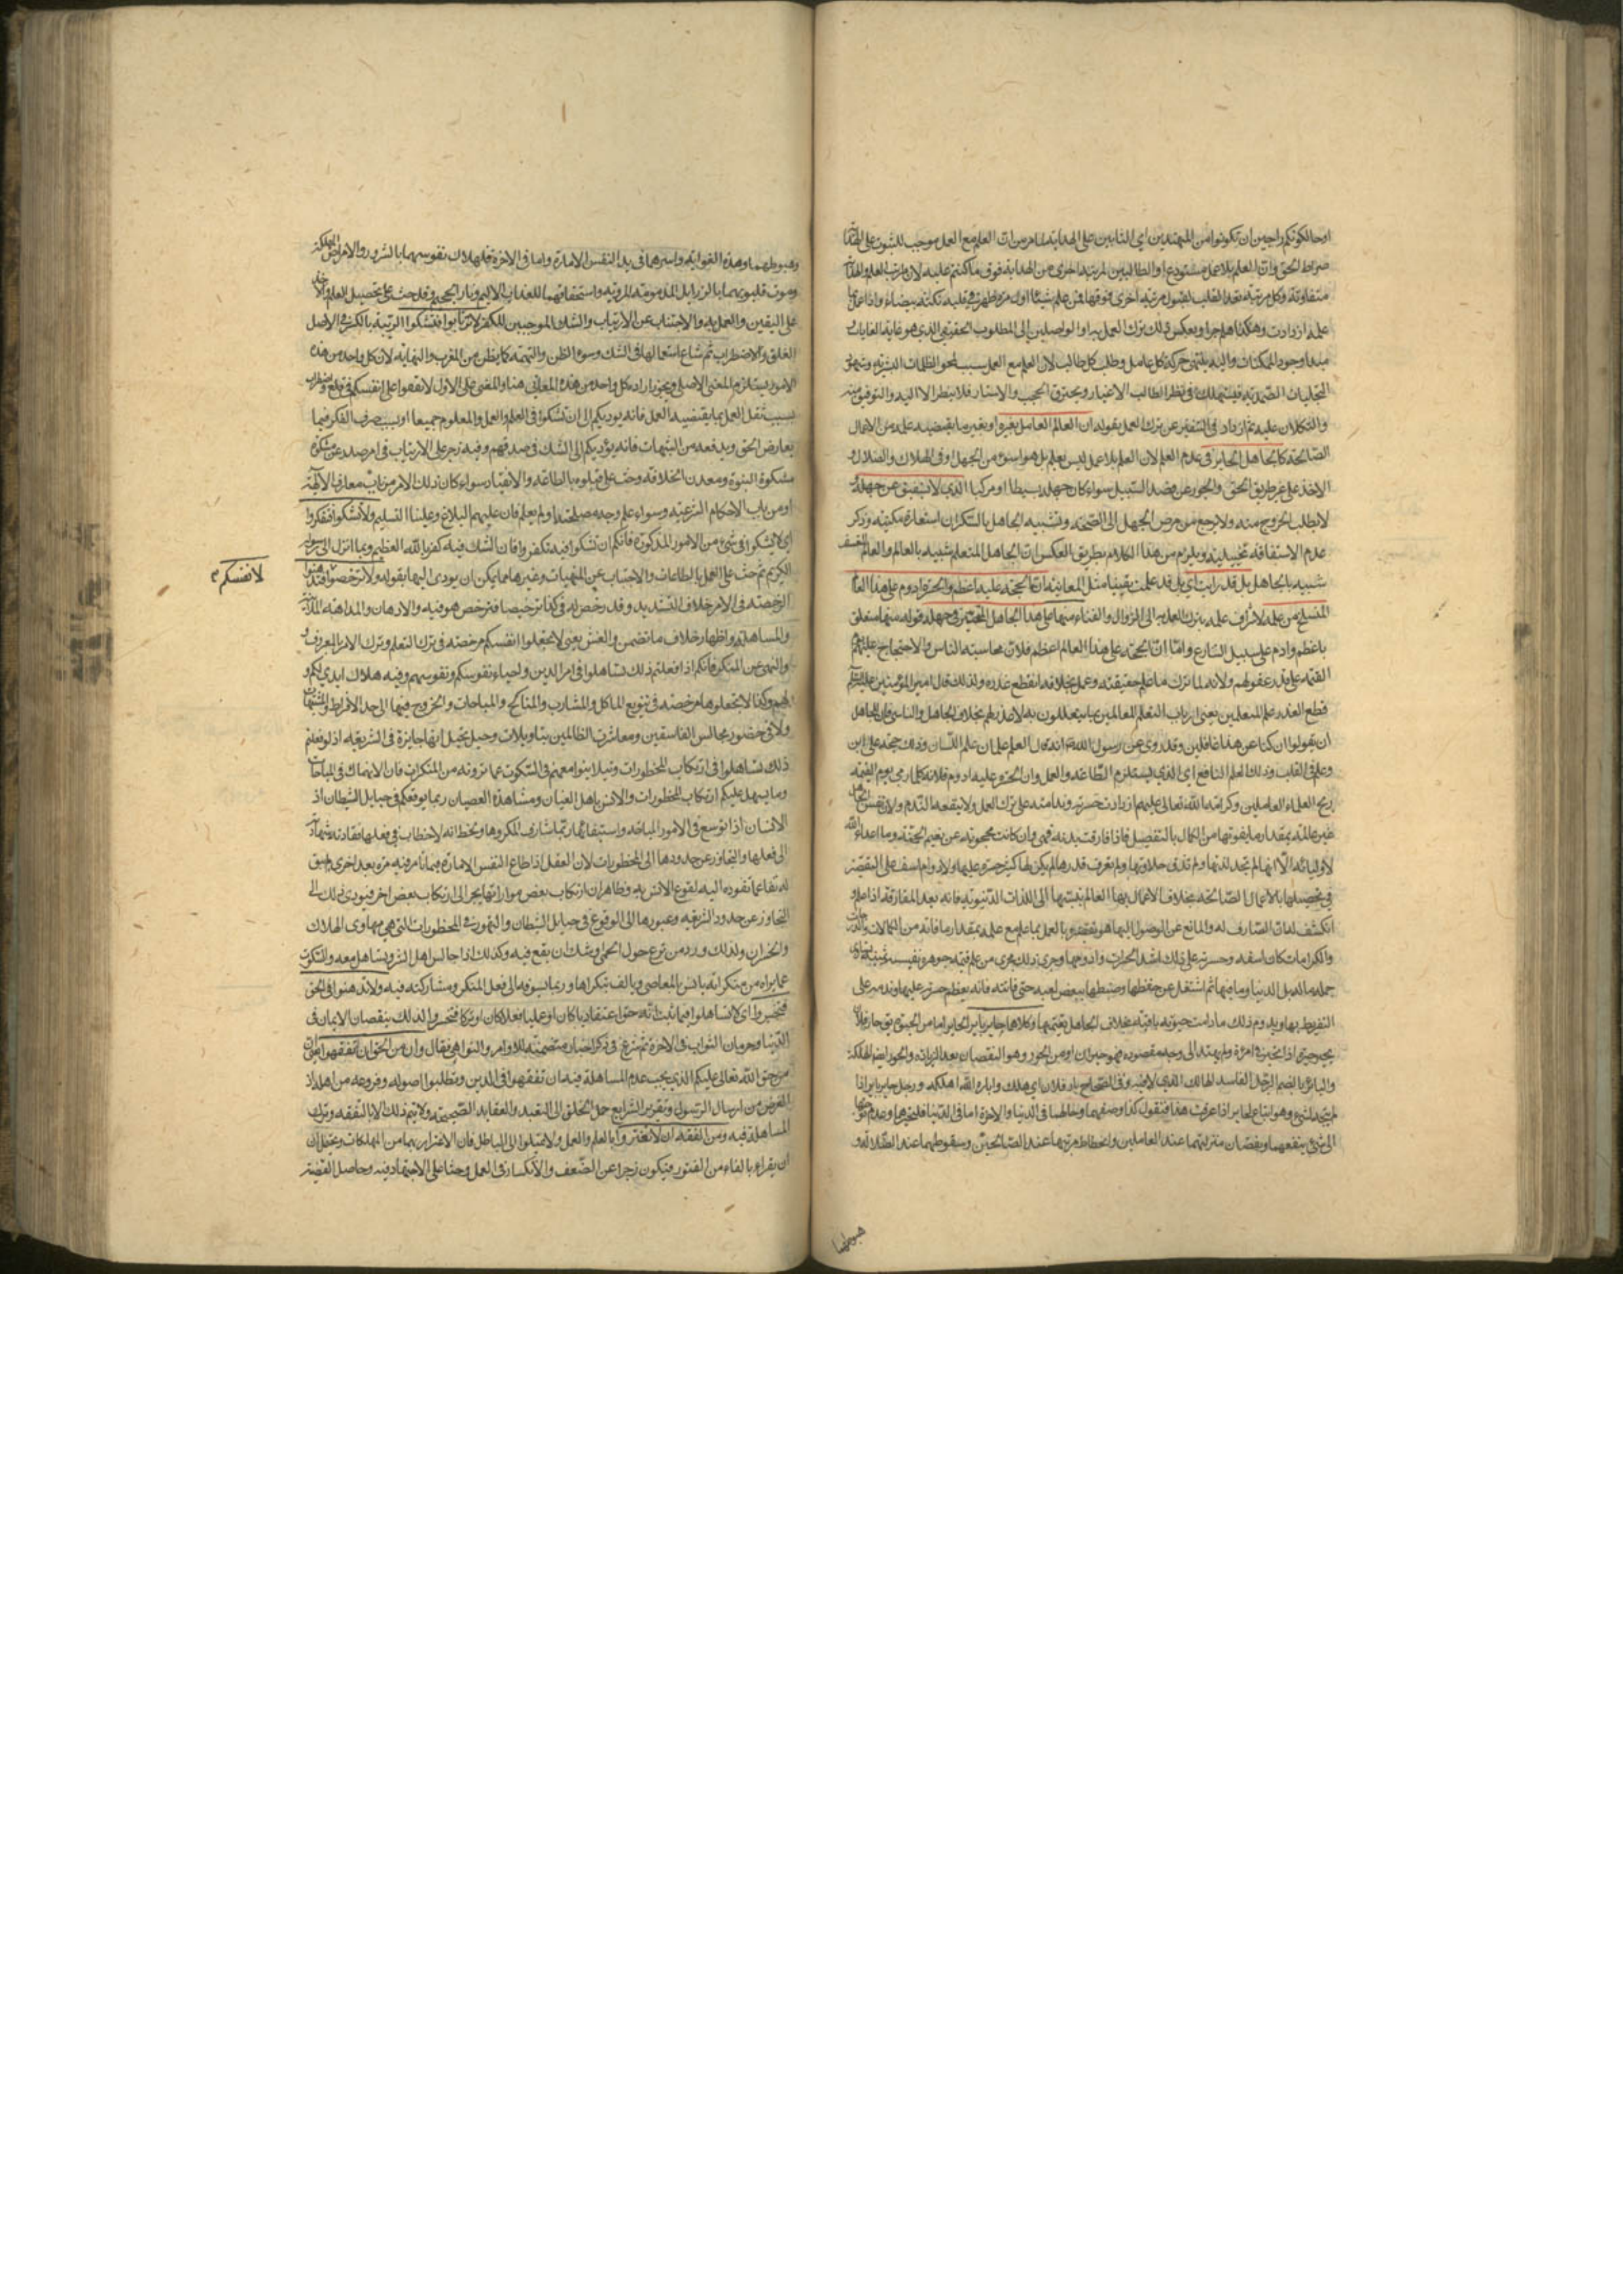 اوحالكونكم راجين ان تكونوا من المهتدين اي الثابتين على الهداية لما مر من ان العلم مع العمل موجب للثبوت على
صراط الحق وان العلم بلا عمل مستودع او الطالبين لمرتبة اخرى من الهداية فوق ما كنتم عليه لان مراتب العلم والهداية
متفاوتة وكل مرتبة تعد القلب لقبول مرتبة اخرى فوقها فمن علم شيئا اولا ظهرت في قلبه نكتة بيضاء واذا عمل
علمه ازدادت وهكذا هلم جرا وبعكس ذلك ترك العمل به والواصلين الى المطلوب الحقيقي الذي هو غاية الغايات
مبدا وجود الممكنات واليه ينتهي حركة كل عامل وطلب كل طالب لان العلم مع العمل سبب لمحو الظلمات البشرية
التجليات الصمدية فيستهلك في نظر الطالب الاغيار ويحترق الحجب والاستار فلا ينظر الا اليه والتوفيق منه
والتكلان عليه ثم ازداد في التنفير عن ترك العمل بقوله ان العالم العامل بغيره اي بغير ما يقتضيه علمه من الاعمال
الصالحة كالجاهل الحاير في عدم العلم لان العلم بلا عمل ليس بعلم بل هو اسوء من الجهل او في الهلاك والضلال و
الاخذ على غير طريق الحق والجور عن قصد السبيل سواء كان جهله بسيطا او مركبا الذي لا يستفيق عن جهله
لا يطلب الخروج منه ولا يرجع من مرض الجهل الى الصحة وتشبيه الجاهل بالسكران استعارة مكنية وذكر
عدم الاستفاقة تخييلية ويلزم من هذا الكلام بطريق العكس ان الجاهل المتعلم شبيه بالعالم والعالم
شبيه بالجاهل بل قد رايت اي بل قد علمت يقينا مثل المعاينة ان الحجة عليه اعظم والحسرة ادوم على هذا العالم
المنسلخ من علمه لاشراف علمه بترك العمل به الى الزوال والفناء منها على هذا الجاهل المتحير في جهله قوله منها متعلق
باعظم وادوم على سبيل التنازع واما ان الحجة على هذا العالم اعظم فلان محاسبة الناس والاحتجاج عليهم يوم
القيمة على قدر عقولهم ولانه لما ترك ما علم حقيقته وعمل بخلافه انقطع عذره ولذلك قال امير المؤمنين
قطع العلم عذر المتعلمين يعني ارباب التعلم العالمين بما يتعللون به لا عذر لهم بخلاف الجاهل والناسي فان للجاهل
ان يقولوا ان كنا عن هذا غافلين وقد روي عن رسول الله انه قال العلم علمان علم اللسان وذلك حجة على ابن
وعلم في القلب وذلك العلم النافع اي الذي يستلزم الطاعة والعمل وان الحسرة عليه ادوم فلانه كلما راى يوم القيمة
ربح العلماء العاملين وكرامة الله تعالى عليهم ازدادت حسرته وندامته على ترك العمل ولا ينفعه الندم ولان نفس الجاهل
غير عالمة بمقدار ما يفوتها من الكمال بالتفصيل فاذا فارقت بدنه فهي وان كانت محجوبة عن نعيم الجنة وما اعد الله
لاوليائه الا انها لم تجد لذتها ولم تذق حلاوتها ولم تعرف قدرها لم يكن لها كثير حسرة عليها ولا دوام اسف على التقصير
في تحصيلها بالاعمال الصالحة بخلاف العالم بها الاعمال بنسبتها الى اللذات الدنيوية فانه بعد المفارقة اذا علم و
انكشف له ان الصارف له والمانع عن الوصول اليها هو تقصيره بالعمل بما علم مع علمه بمقدار ما فاته من الكمالات
والكرامات كان اسفه وحسرته على ذلك اشد الحسرات وادومها وجرى ذلك مجرى من علم قيمة جوهرة نفيسة ثمينة
جملة مال بل الدنيا وما فيها ثم اشتغل عن حفظها وضبطها ببعض لعبه حتى فاتته فانه يعظم حسرته عليها وندمه على
التفريط بها ويدوم ذلك ما دامت حيوته باقية بخلاف الجاهل بقيمتها وكلاهما حاير باير الحاير اما من الحيرة يق حار فلان
يحير حيرة اذا تحير في امره ولم يهتد الى وجه مقصوده فهو حيران او من الحور وهو النقصان بعد الزيادة والحور ايضا الهلكة
والبائر بالضم الرجل الفاسد الهالك الذي لا خير فيه وفي الصحاح بار فلان اي هلك واباره الله اهلكه ورجل حاير باير اذا
لم يتجه لشيء وهو اتباع لحاير اذا عرفت هذا فنقول كذا وصفهما وحالهما في الدنيا والاخرة اما في الدنيا فلتحيرهما وعدم توجههما
الى شيء ينفعهما ونقصان منزلتهما عند العاملين وانحطاط مرتبتهما عند الصالحين وسقوطهما عند الضلالة و
هبوطهما
وهبوطهما وهدة الغواية واسرهما في يد النفس الامارة واما في الاخرة فلهلاك نفوسهما بالشرور والامراض المهلكة
وموت قلوبهما بالرزايل المذمومة المردية واستحقاقهما للعذاب الاليم ونار الجحيم وقد حث على تحصيل العلم
على اليقين والعمل به والاجتناب عن الارتياب والشك الموجبين للكفر لا ترتابوا فتشكوا الريبة بالكسر في الاصل
القلق والاضطراب ثم شاع استعمالها في الشك وسوء الظن والتهمة لان كل واحد من هذه
الامور يستلزم المعنى الاصلي ويجوز ارادة كل واحد من هذه المعاني هنا والمعنى على الاول لا توقعوا انفسكم في قلق واضطراب
بسبب ثقل العمل بما يقتضيه العمل فانه يوديكم الى ان تشكوا في العلم والعمل والمعلوم جميعا او بسبب صرف الفكر فيما
يعارض الحق ويدفعه من الشبهات فانه يؤديكم الى الشك في صدقهم وفيه زجر على الارتياب في امر صدر عن
مشكوة النبوة ومعدن الخلافة وحث على قبوله بالطاعة والانقياد سواء كان ذلك الامر من باب معارف الالهية
او من باب الاحكام الشرعية وسواء علم وجه مصلحته او لم يعلم فان عليهم البلاغ وعلينا التسليم ولا تشكوا فتكفروا
اي لا تشكوا في شيء من الامور المذكورة فانكم ان تشكوا فيه تكفروا فان الشك فيه كفر بالله العظيم وبما انزل الى رسوله
الكريم ثم حث على العمل بالطاعات والاجتناب عن المنهيات وغيرها مما يمكن ان يودى اليها بقوله ولا ترخصوا فتدهنوا
لانفسكم
الرخصة في الامر خلاف التشديد وقد رخص له في كذا ترخيصا فترخص هو فيه والادهان والمداهنة
والمساهلة واظهار خلاف ما تضمر والغش يعني لا تجعلوا انفسكم مرخصة في ترك التعلم وترك الامر بالمعروف
والنهي عن المنكر فانكم اذا فعلتم ذلك تساهلوا في امر الدين واحياء نفوسكم ونفوسهم وفيه هلاك ابدي لكم و
لهم وكذا لا تجعلوها مرخصة في تنويع الماكل والمشارب والمناكح والمباحات والخروج فيها الى حد الافراط
ولا في حضور مجالس الفاسقين ومعاشرة الظالمين بتاويلات وحيل يخيل انها جايزة في الشريعة اذ لو فعلتم
ذلك تساهلوا في ارتكاب المحظورات وتبلا ينوا معهم في السكوت عما ترونه من المنكرات فان الانهماك في المباحات
وما يسهل عليكم ارتكاب المحظورات والانس باهل العصيان ومشاهدة العصيان ربما يوقعكم في حبايل الشيطان اذ
الانسان اذا توسع في الامور المباحة واستيفائها ربما شارف المكروهات
الى فعلها والتجاوز عن حدودها الى المحظورات لان العقل اذا اطاع النفس الامارة فيما تامر فيه مرة بعد اخرى لم يبق
له نفار عما تقوده اليه لوقوع الانس به وظاهر ان ارتكاب بعض مواراتها يجر الى ارتكاب بعض اخر فيودى ذلك الى
التجاوز عن حدود الشريعة وعبورها الى الوقوع في حبايل الشيطان والتهور في المحظورات التي هي مهاوى الهلاك
والخسران ولذلك ورد من يرتع حول الحمى يوشك ان يقع فيه وكذلك اذا جالس اهل الشر ويتساهل معه والسكوت
عما يراه من منكراته يانس بالمعاصي ويالف بتكرارها وربما يسوقه الى فعل المنكر ومشاركته فيه ولا تدهنوا في الحق
فتخسروا اي لا تساهلوا فيما ثبت انه حق اعتقاديا كان او عمليا فعلا كان او تركا فتخسروا لذلك بنقصان الايمان في
الدنيا وحرمان الثواب في الاخرة ثم شرع في ذكر اخبار متضمنة للاوامر والنواهي فقال وان من الحق ان تفقهوا
من حق الله تعالى عليكم الذي يجب عدم المساهلة فيه ان تفقهوا في الدين وتطلبوا اصوله وفروعه من اهله اذ
الغرض من ارسال الرسول وتقرير الشرايع حمل الخلق الى التعبد والعقايد الصحيحة ولا يتم ذلك الا بالتفقه وترك
المساهلة فيه ومن الفقه ان لا تغتروا بالعلم والعمل ولا تميلوا الى الباطل فان الاغترار بهما من المهلكات ويحتمل ان
ان يقراء بالفاء من الفتور فيكون زجرا عن الضعف والانكسار في العمل وحثا على الاجتهاد فيه وحاصل القضية